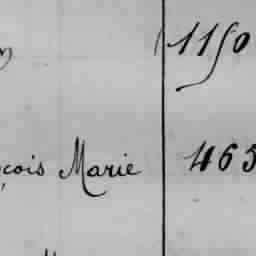 1150
çois Marie 465